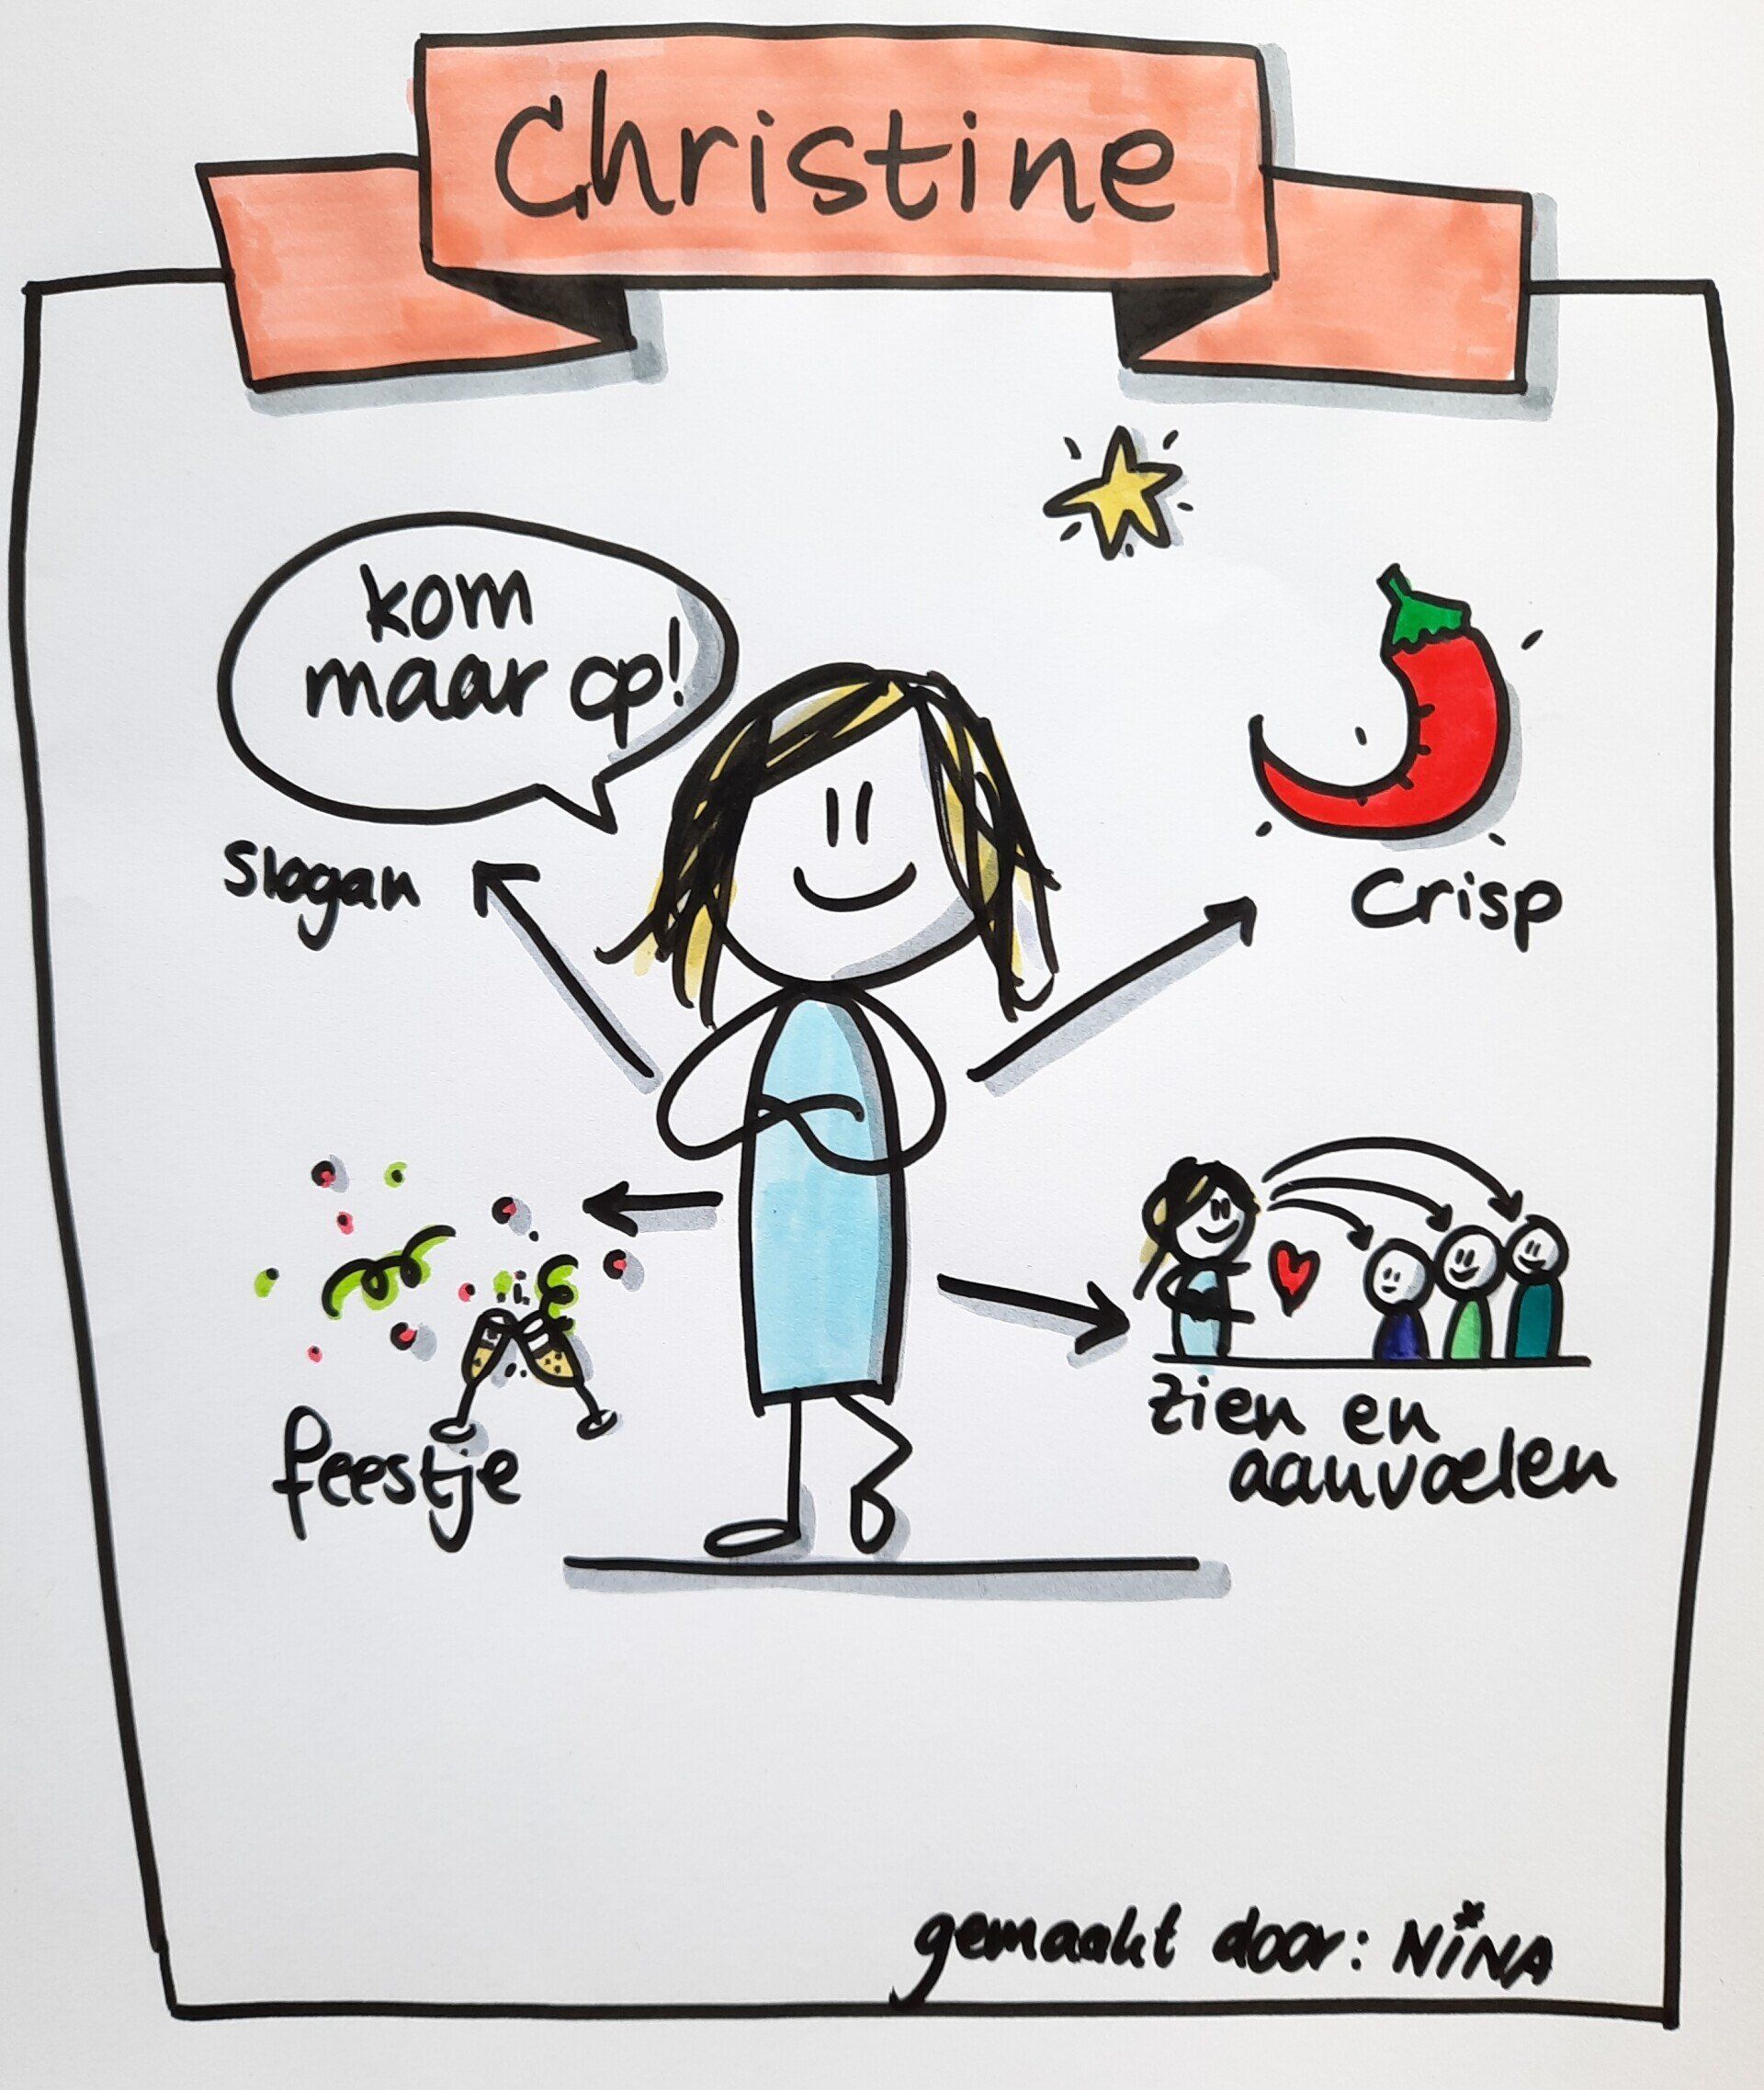 Christine
kom
maar op!
slogan
crisp
feestje
zien en
aanvoelen
gemaakt door: NINA